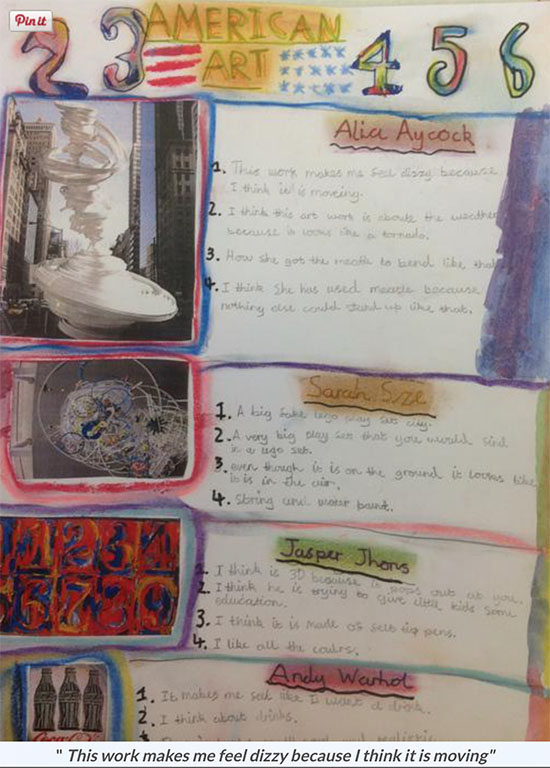 Pin it
2 3 AMERICAN ART 4 5 6
Alice Aycock
1. This work makes me feel dizzy because
I think it is moveing.
2. I think this art work is aboute the weather
because it looks like a tornado.
3. How she got the meatle to bend like that
4. I think She has used meatle because
nothing else could stand up like that.
Sarah Sze
1. A big fake lego play set city.
2. A very big play set that you would find
in a lego set.
3. even though it is on the ground it looks like
it is in the air.
4. String and water paint.
Jasper Jhons
1. I think is 3D because it pops out at you.
2. I think he is trying to give little kids some
education.
3. I think it is made of felt tip pens.
4. I like all the coulrs.
Andy Warhol
1. It makes me feel like I want a drink.
2. I think about drinks.
" This work makes me feel dizzy because I think it is moving"